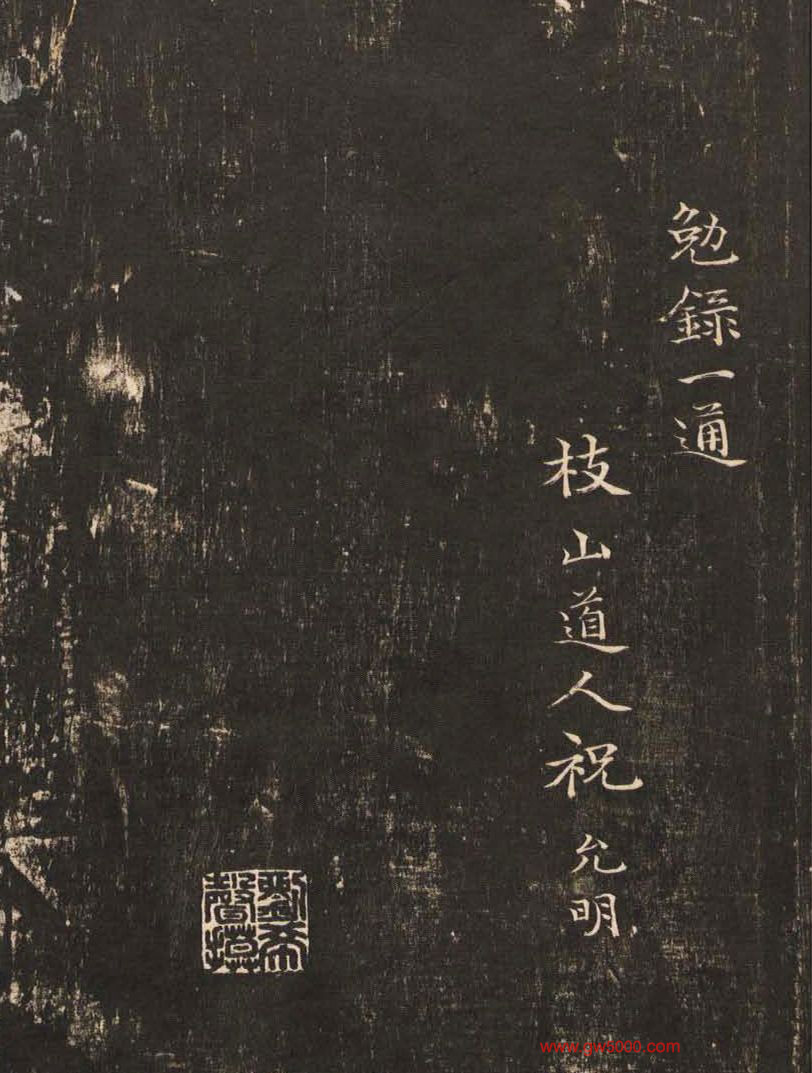 勉錄一通
枝山道人祝允明
www.gw5000.com